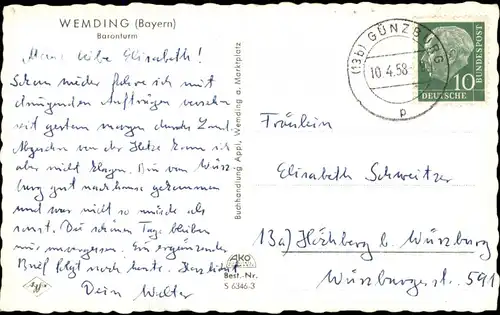 WEMDING (Bayern)
Baronturm
Meine liebe Elisabeth!
Schon wieder fahre ich mit
dringenden Aufträgen versehen
seit gestern morgen durchs Land.
Abgesehen von der Hetze kann ich
aber nicht klagen. Bin von Würz-
burg gut nachhause gekommen
und war nicht so müde als
sonst. Die schönen Tage bleiben
mir unvergessen. Ein ergänzender
Brief folgt noch heute. Herzlichst
Dein Walter
Buchhandlung Appl, Wemding a. Marktplatz
AKO
Best.-Nr.
S 6346-3
(13b) GÜNZBURG
10.4.58
p
10
DEUTSCHE
BUNDESPOST
Fräulein
Elisabeth Schweitzer
13a) Höchberg b/ Würzburg
Würzburgerst. 591